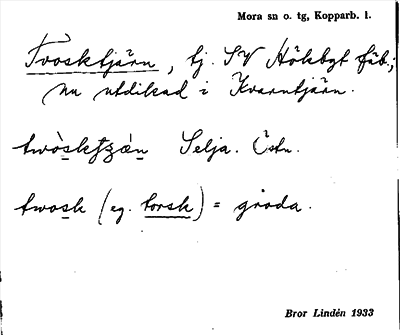 Mora sn o. tg, Kopparb. l.
Tvosktjärn, tj. SV Hökbgt fäb.;
nu utdikad i Kvarntjärn.
twòskţʒæ̀n Selja. Östn.
twosk (eg. torsk) = groda.
Bror Lindén 1933